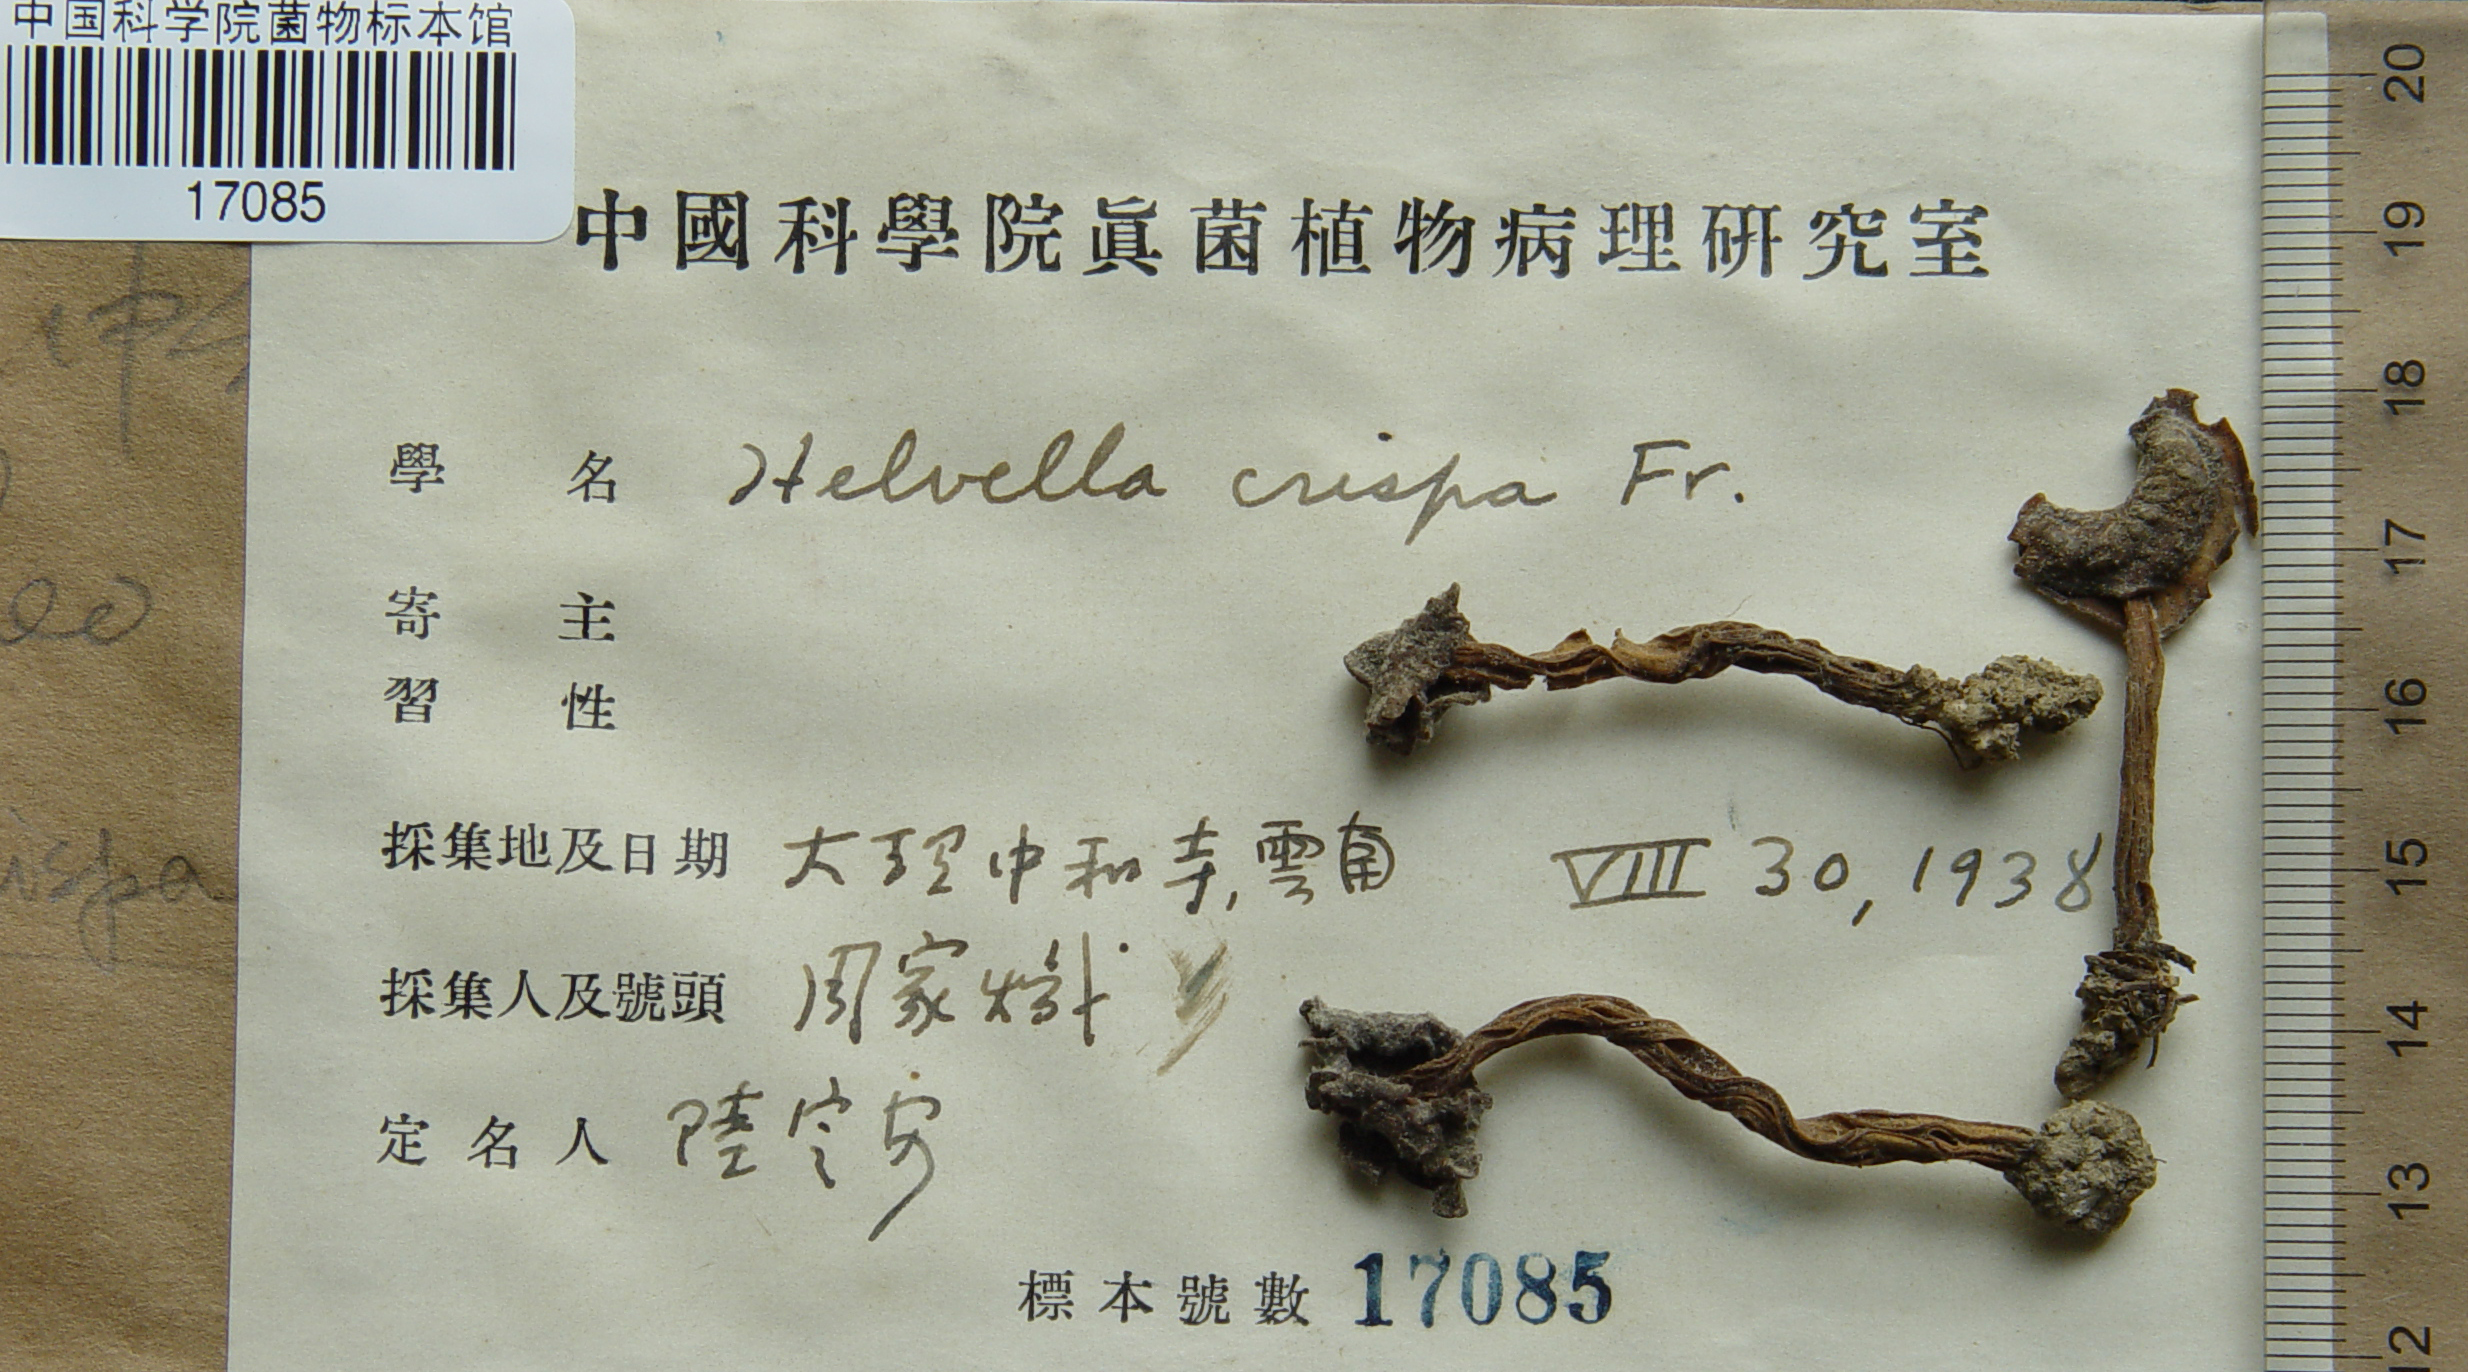 中国科学院菌物标本馆
17085
中國科學院眞菌植物病理研究室
學名 Helvella crispa Fr.
寄主
習性
採集地及日期 大理中和寺,雲南 VIII 30, 1938
採集人及號頭 周家熾
定名人 陸定安
標本號數 17085
20
19
18
17
16
15
14
13